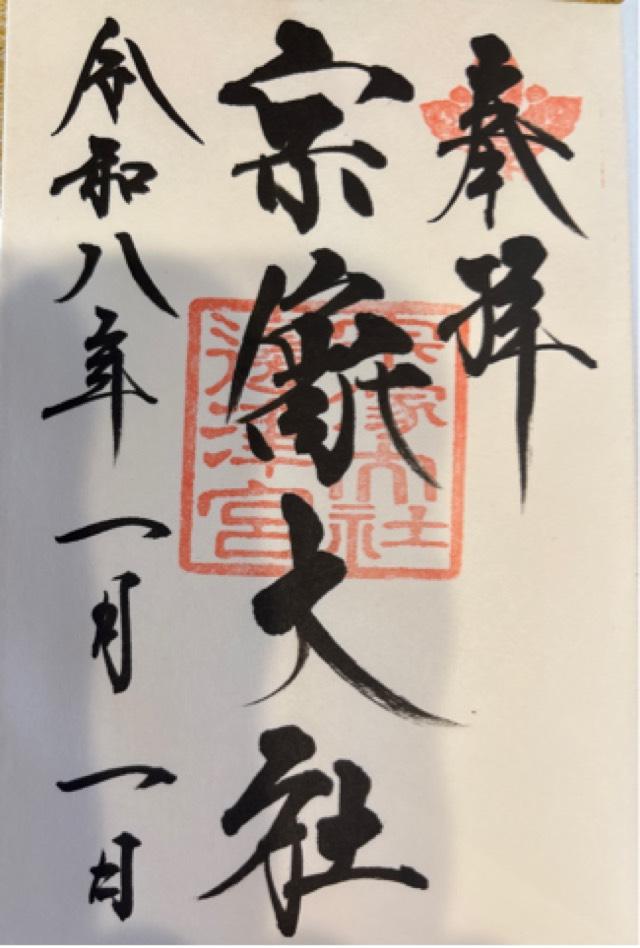 奉拝
宗像大社
令和八年一月一日
宗像大社
邊津宮